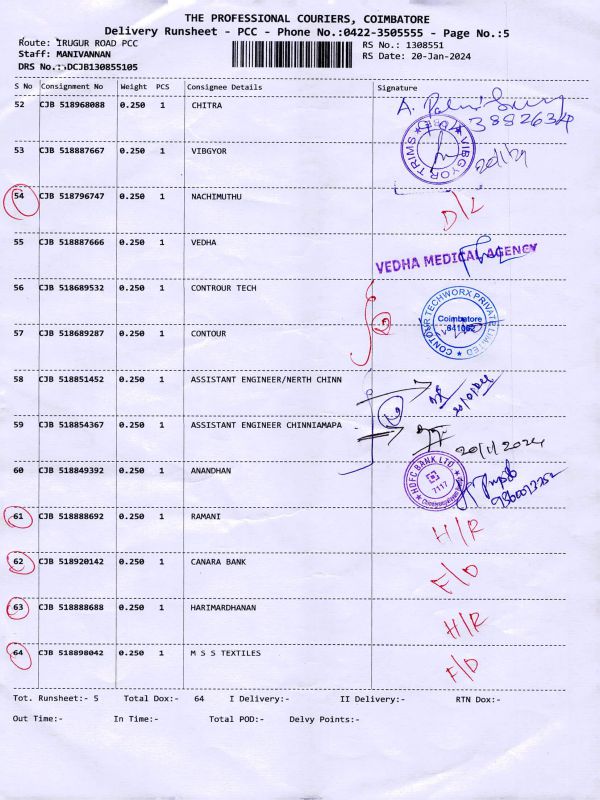 THE PROFESSIONAL COURIERS, COIMBATORE
Delivery Runsheet - PCC - Phone No.:0422-3505555 - Page No.:5
Route: IRUGUR ROAD PCC
RS No.: 1308551
Staff: MANIVANNAN
RS Date: 20-Jan-2024
DRS No.: DCJB130855105
S No Consignment No Weight PCS Consignee Details Signature
52 CJB 518968088 0.250 1 CHITRA
3882634
53 CJB 518887667 0.250 1 VIBGYOR
VIBGYOR TRIMS
54 CJB 518796747 0.250 1 NACHIMUTHU D/L
55 CJB 518887666 0.250 1 VEDHA
VEDHA MEDICAL AGENCY
56 CJB 518689532 0.250 1 CONTROUR TECH
CONTOUR TECHWORX PRIVATE LIMITED
Coimbatore
641062
57 CJB 518689287 0.250 1 CONTOUR
58 CJB 518851452 0.250 1 ASSISTANT ENGINEER/NERTH CHINN
59 CJB 518854367 0.250 1 ASSISTANT ENGINEER CHINNIAMAPA
20/1/2024
60 CJB 518849392 0.250 1 ANANDHAN
HDFC BANK LTD.
7117
61 CJB 518888692 0.250 1 RAMANI H/R
62 CJB 518920142 0.250 1 CANARA BANK F/D
63 CJB 518888688 0.250 1 HARIMARDHANAN H/R
64 CJB 518898042 0.250 1 M S S TEXTILES F/D
Tot. Runsheet:- 5 Total Dox:- 64 I Delivery:- II Delivery:- RTN Dox:-
Out Time:- In Time:- Total POD:- Delvy Points:-